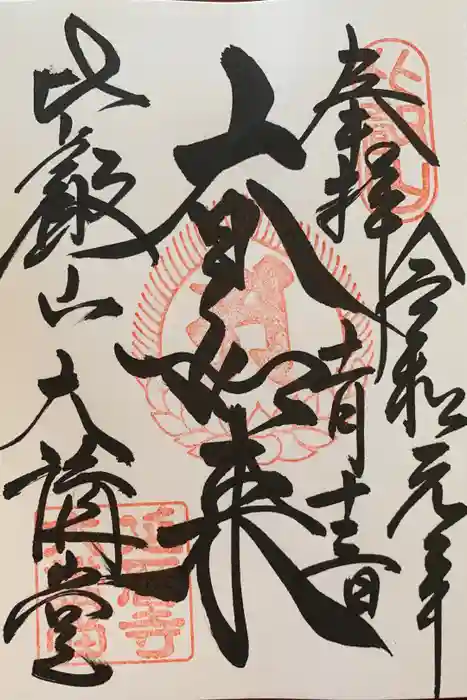 比叡山
奉拝
令和元年
十一月十三日
大日如来
比叡山
大講堂
延暦寺
大講堂